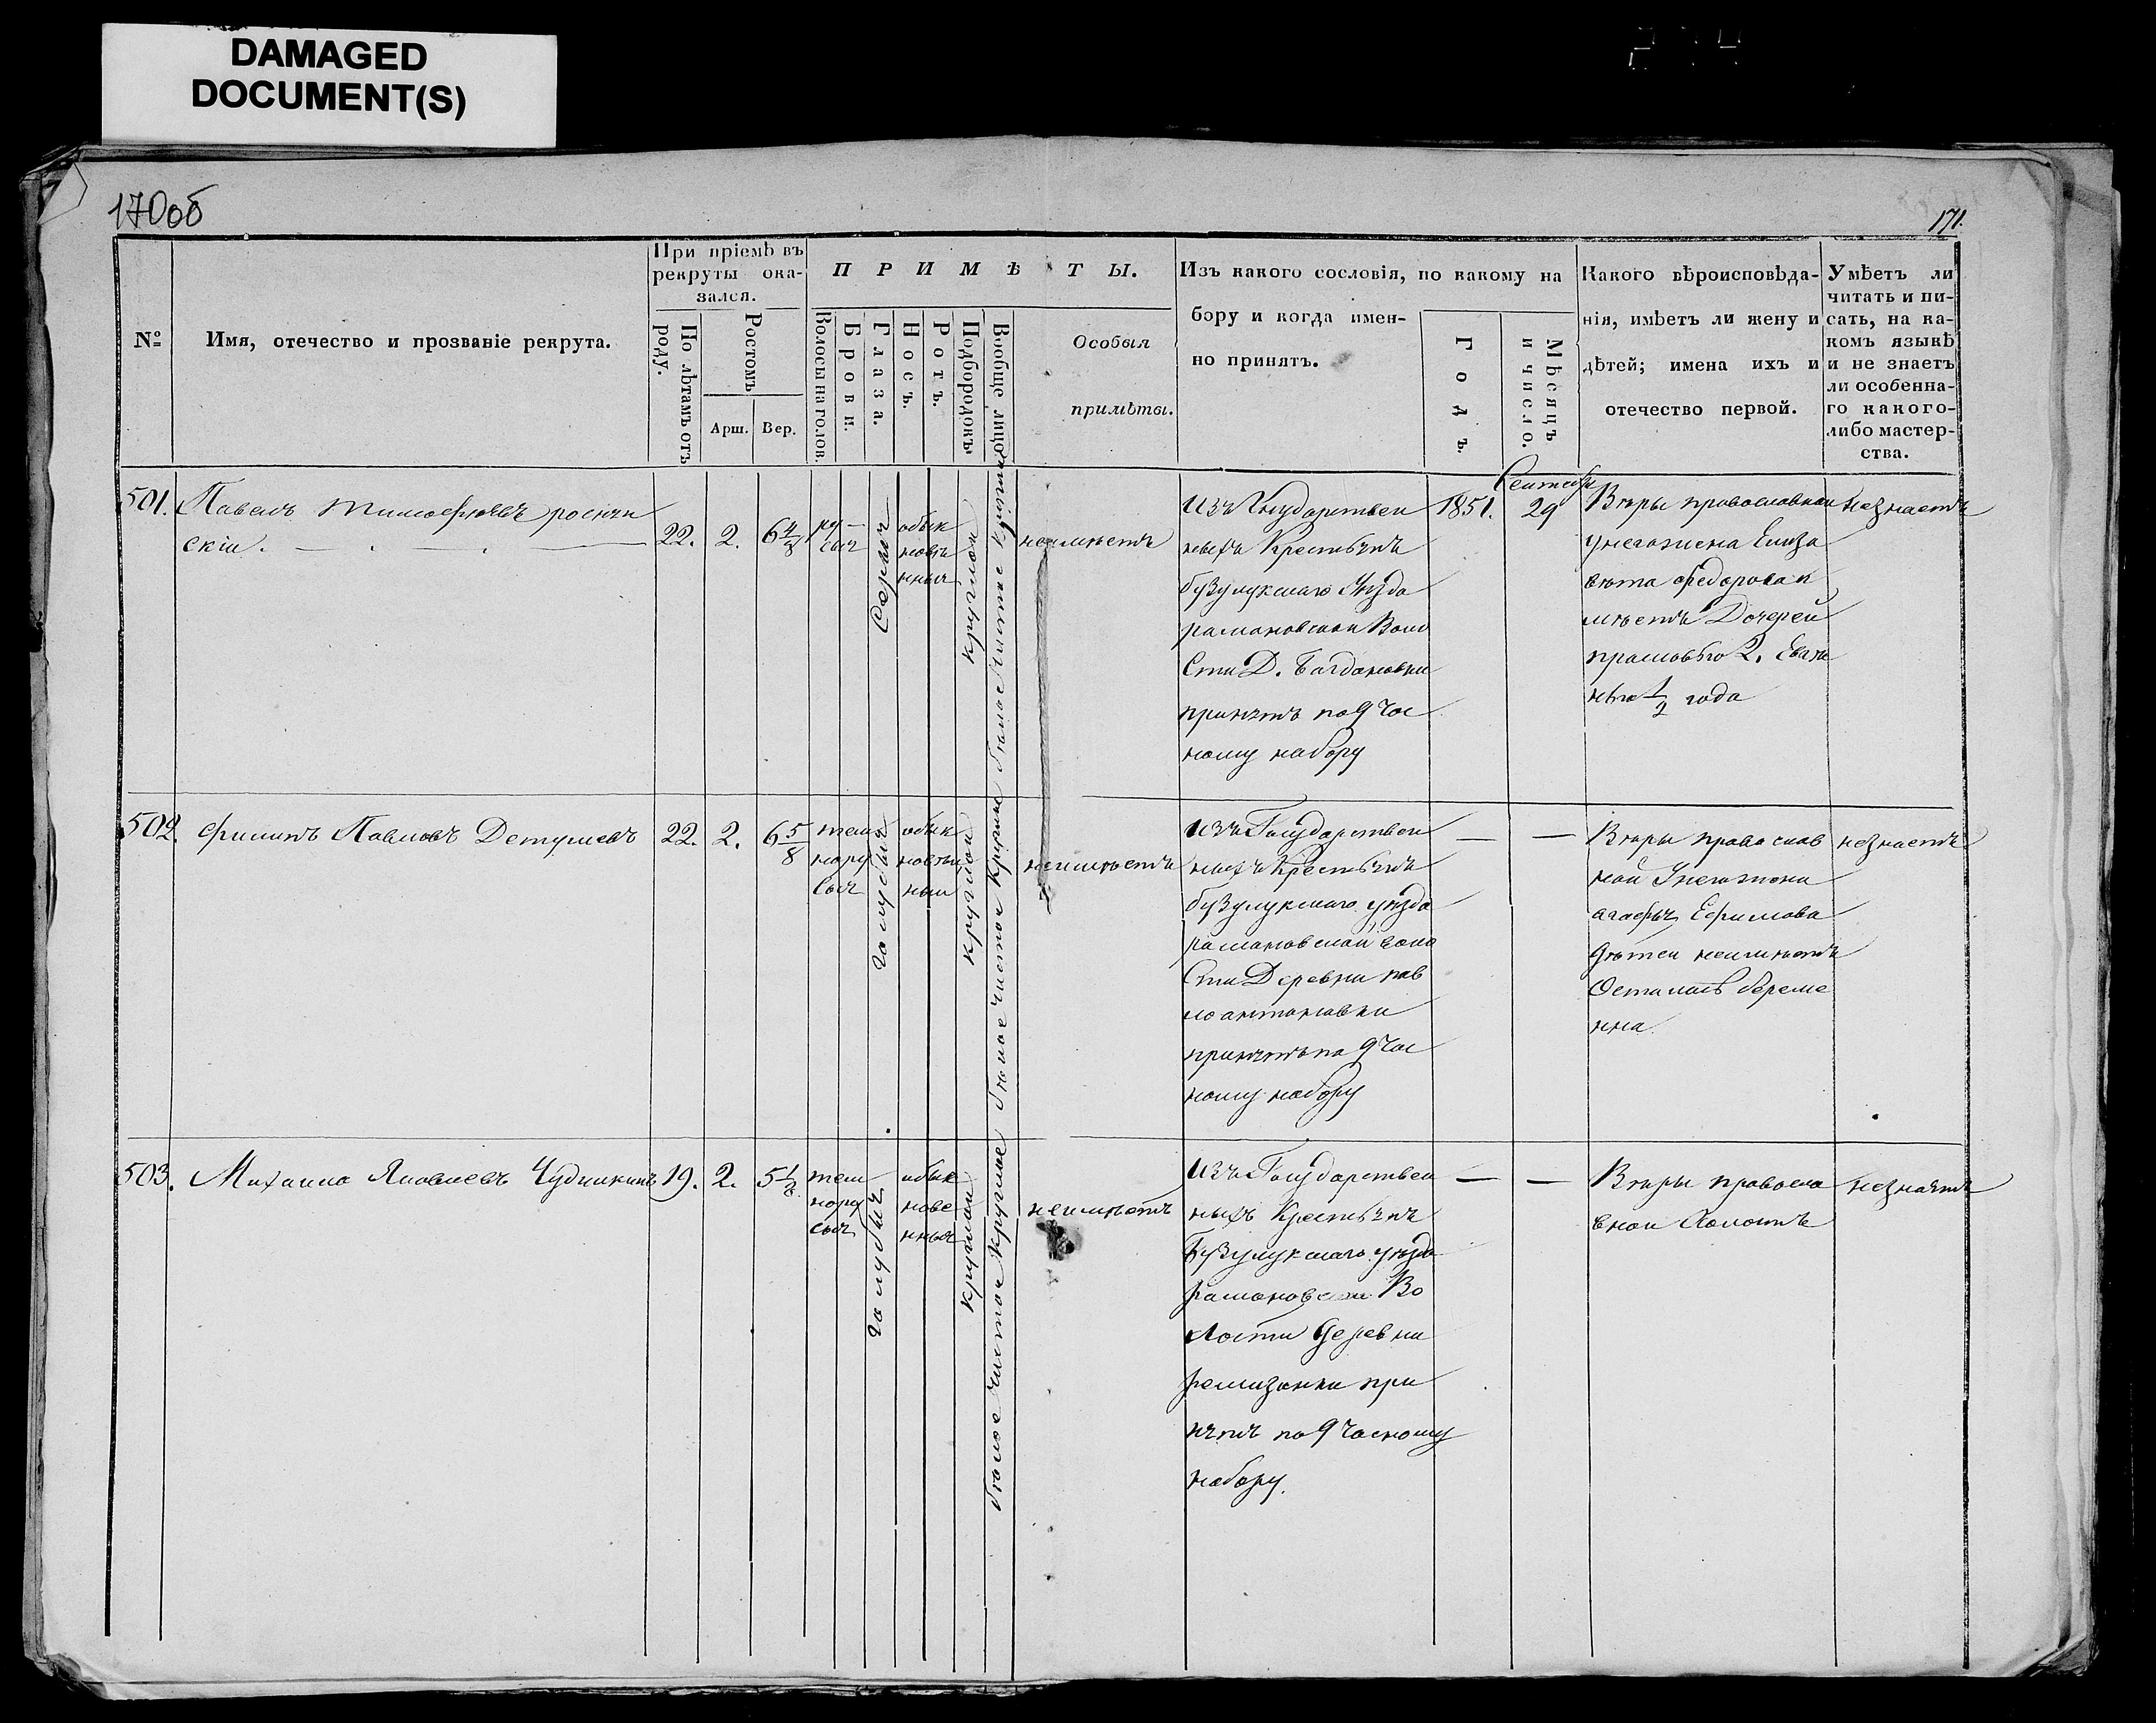 DAMAGED
DOCUMENT(S)
170об
171.
№
Имя, отечество и прозваніе рекрута.
При пріемѣ въ
рекруты ока-
зался.
По лѣтамъ отъ
роду.
Ростомъ
Арш.
Вер.
ПРИМѢТЫ.
Волосы на голов.
Брови.
Глаза.
Носъ.
Ротъ.
Подбородокъ
Вообще лицо
Особыя
примѣты.
Изъ какого сословія, по какому на
бору и когда имен-
но принятъ.
Годъ.
Мѣсяцъ
и число.
Какого вѣроисповѣда-
нія, имѣетъ ли жену и
дѣтей; имена ихъ и
отечество первой.
Умѣетъ ли
читать и пи-
сать, на ка-
комъ языкѣ
и не знаетъ
ли особенна-
го какого-
либо мастер-
ства.
501.
Павелъ Тимофѣевъ
скіи.
22.
2.
6 4/8
ру-
сыя
Серыя
обык
новѣ
нныя
круглои
белое чистое круглое
неимѣетъ
Изъ Государствен
ныхъ Крестьянъ
бузулукскаго Уѣзда
рамановскои Воло
Сти Д. Багдановки
принятъ по 9 час
ному набору
1851.
Сентебр
29
Вѣры православнои
унего жена Елиза
вѣта федорова и
мѣетъ Дочерей
прасковью 2. Евге
нью 1/2 года
незнаетъ
502.
филипъ Павловъ Детушевъ
22.
2.
6 5/8
тем
нору
сыя
галубыя
обык
новѣн
ныи
круглои
белое чистое круглое
неимѣетъ
Изъ Государствен
ныхъ Крестьянъ
бузулукскаго уѣзда
рамановскои воло
Сти Деревни пав
лоантоновки
принятъ по 9 час
ному набору
—
—
Вѣры православ
ной Унего жена
агафья Ефимова
дѣтеи неимѣетъ
Осталась береме
нна
незнаетъ
503.
Михаила Яковлевъ Чудилкинъ
19.
2.
5 1/8
тем
нору
сыя
галубыя
обык
нове
нныя
круглои
белое чистое круглое
неимѣетъ
Изъ Государствен
ныхъ Крестьянъ
Бузулукскаго уѣзда
рамановскои Во
лости Деревни
ремизенки при
нятъ по 9 часному
набору.
—
—
Вѣры правосла
внои Холостъ
незнаетъ